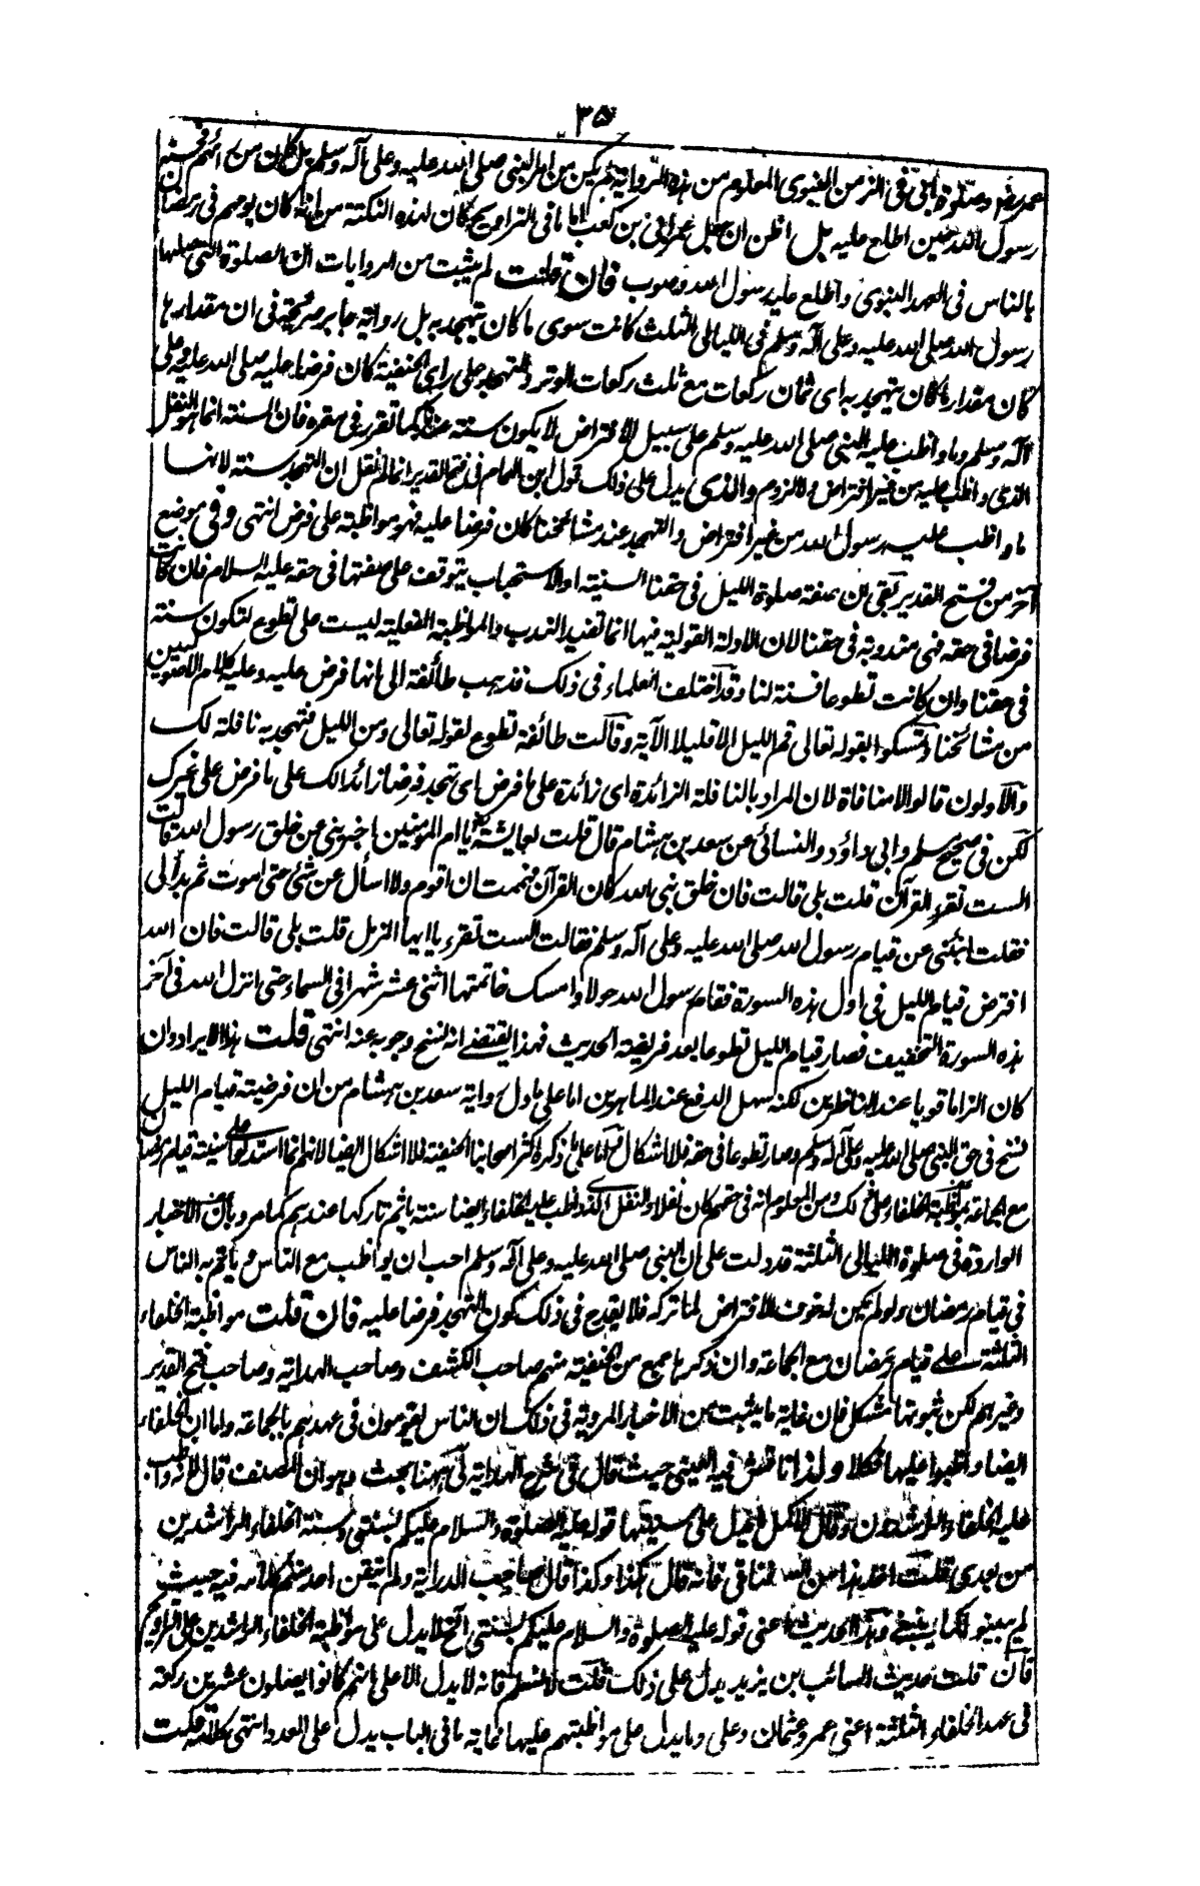 ٣٥
عمر رضه وصلوة ابيّ في الزمن النبوي المعلوم من هذه الرواية لم يكن من امر النبي صلى الله عليه وعلى آله وسلم بل كان من رائهم فحسنه
رسول الله حين اطلع عليه بل اظن ان جعل عمر ابيّ بن كعب اماما في التراويح كان لهذه النكتة من انه كان يومهم في رمضان
بالناس في العهد النبوي واطلع عليه رسول الله وصوب فان قلت لم يثبت من الروايات ان الصلوة التي صلها
رسول الله صلى الله عليه وعلى آله وسلم في الليالي الثلث كانت سوى ما كان يتهجد به بل رواية جابر صريحة في ان مقدارها
كان مقدار ما كان يتهجد به اي ثمان ركعات مع ثلث ركعات الوتر والتهجد على راي الحنفية كان فرضا عليه صلى الله عليه وعلى
آله وسلم وما واظب عليه النبي صلى الله عليه وسلم على سبيل الافتراض لا يكون سنة عندنا كما تقرر في مقره فان السنة انما هو النفل
الذي واظب عليه من غير افتراض ولا لزوم والذي يدل على ذلك قول ابن الهمام في فتح القدير انما لم نقل ان التهجد سنة لانها
ما واظب عليه رسول الله من غير افتراض والتهجد عند مشائخنا كان فرضا عليه فهو مواظبة على فرض انتهى وفي موضع
آخر من فتح القدير بقي ان صفة صلوة الليل في حقنا السنية او الاستحباب يتوقف على صفتها في حقه عليه السلام فان كانت
فرضا في حقه فهي مندوبة في حقنا لان الادلة القولية فيها انما تفيد الندب والمواظبة الفعلية ليست على تطوع لتكون سنة
في حقنا وان كانت تطوعا فسنة لنا وقد اختلف العلماء في ذلك فذهب طائفة الى انها فرض عليه وعليه كلام الاصوليين
من مشائخنا وتمسكوا بقوله تعالى قم الليل الا قليلا الآية وقالت طائفة تطوع لقوله تعالى ومن الليل فتهجد به نافلة لك
والاولون قالوا لا منافاة لان المراد بالنافلة الزائدة اي زائدة على ما فرض اي تهجد فرضا زائدا لك على ما فرض على غيرك
لكن في صحيح مسلم وابي داؤد والنسائي عن سعد بن هشام قال قلت لعايشة يا ام المؤمنين اخبريني عن خلق رسول الله قالت
الست تقرء القرآن قلت بلى قالت فان خلق نبي الله كان القرآن فهممت ان اقوم ولا اسأل عن شئ حتى اموت ثم بدأ لي
فقلت انبئني عن قيام رسول الله صلى الله عليه وعلى آله وسلم فقالت الست تقرء يا ايها المزمل قلت بلى قالت فان الله
افترض قيام الليل في اول هذه السورة فقام رسول الله حولا وامسك خاتمتها اثنى عشر شهرا في السماء حتى انزل الله في آخر
هذه السورة التخفيف فصار قيام الليل تطوعا بعد فريضة الحديث فهذا يقتضي انه نسخ وجوبه عنه انتهى قلت هذا الايراد وان
كان الزاما قويا عند الناظرين لكنه سهل الدفع عند الماهرين اما على ما دل رواية سعد بن هشام من ان فرضية قيام الليل
نسخ في حق النبي صلى الله عليه وعلى آله وسلم وصار تطوعا في حقه فلا اشكال واما على ما ذكره اكثر اصحابنا الحنفية فلا اشكال ايضا لانهم انما استدلوا على سنية قيام رمضان
مع الجماعة بمواظبة الخلفاء على ذلك ومن المعلوم انه في حقهم كان نفلا والنفل الذي واظب عليه الخلفاء ايضا سنة ياثم تاركها عندهم كما مر وبان الاخبار
الواردة في صلوة الليالي الثلثة قد دلت على ان النبي صلى الله عليه وعلى آله وسلم احب ان يواظب مع الناس وياتم به الناس
في قيام رمضان ولو لم يكن له خوف الافتراض لما تركه فلا يقدح في ذلك كون التهجد فرضا عليه فان قلت مواظبة الخلفاء
الثلثة على قيام رمضان مع الجماعة وان ذكرها جمع من الحنفية منهم صاحب الكشف وصاحب الهداية وصاحب فتح القدير
وغيرهم لكن ثبوتها مشكل فان غاية ما يثبت من الاخبار المروية في ذلك ان الناس يقومون في عهدهم بالجماعة واما ان الخلفاء
ايضا واظبوا عليها فكلا ولذا ناقش فيه العيني حيث قال في شرح الهداية لي ههنا بحث وهو ان المصنف قال لانه واظب
عليه الخلفاء الراشدون وقال الاكمل الدليل على سنيتها قوله عليه الصلوة والسلام عليكم بسنتي وسنة الخلفاء الراشدين
من بعدي قلت اخذ هذا من السغناقي فانه قال هكذا وكذا قال صاحب الدراية ولم يتيقن احد منهم كلامه فيه حيث
لم يبينوا كما ينبغي وهذا الحديث اعني قوله عليه الصلوة والسلام عليكم بسنتي الخ لا يدل على مواظبة الخلفاء الراشدين على التراويح
فان قلت حديث السائب بن يزيد يدل على ذلك قلت لا نسلم فانه لا يدل الا على انهم كانوا يصلون عشرين ركعة
في عهد الخلفاء الثلثة اعني عمر وعثمان وعلي وما يدل على مواظبتهم عليها فغاية ما في الباب يدل على العدد انتهى كلامه قلت